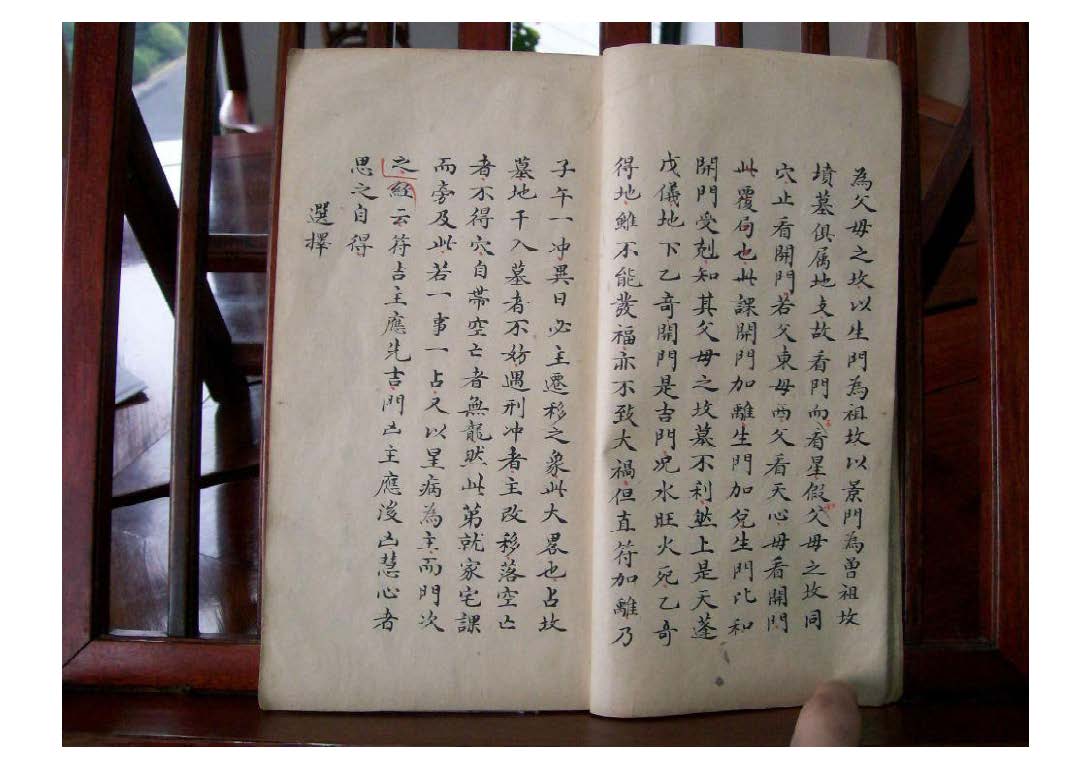 為父母之坟以生門為祖坟以景門為曽祖坟
墳墓俱属地支故看門而看星假父母之坟同
穴止看開門若父東母西父看天心母看開門
此覆局也此課開門加離生門加兌生門比和
開門受尅知其父母之坟墓不利然上是天蓬
戊儀地下乙奇開門是吉門况水旺火死乙奇
得地雖不能發福亦不致大禍但直符加離乃
子午一冲異日必主遷移之象此大畧也占坟
墓地干入墓者不妨遇刑冲者主改移落空亡
者不得穴自帯空亡者無龍然此第就家宅課
而旁及此若一事一占又以星病為主而門次
之經云符吉主應先吉門凶主應後凶慧心者
思之自得
選擇